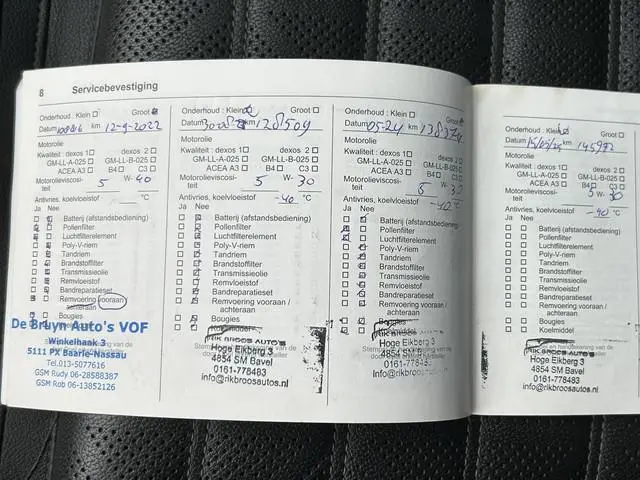 8 Servicebevestiging
Onderhoud : Klein Groot
Datum km 12-9-2022
Motorolie
Kwaliteit : dexos 1 dexos 2
GM-LL-A-025 GM-LL-B-025
ACEA A3 B4 C3
Motorolieviscosi- 5 W- 40
teit
Antivries, koelvloeistof °C
Ja Nee
Batterij (afstandsbediening)
Pollenfilter
Luchtfilterelement
Poly-V-riem
Tandriem
Brandstoffilter
Transmissieolie
Remvloeistof
Bandreparatieset
Remvoering vooraan/
achteraan
De Bruyn Auto's VOF
Winkelhaak 3
5111 PX Baarle-Nassau
Tel.013-5077616
GSM Rudy 06-28588387
GSM Rob 06-13852126
Onderhoud : Klein Groot
Datum km 128509
Motorolie
Kwaliteit : dexos 1 dexos 2
GM-LL-A-025 GM-LL-B-025
ACEA A3 B4 C3
Motorolieviscosi- 5 W- 30
teit
Antivries, koelvloeistof -40 °C
Ja Nee
Batterij (afstandsbediening)
Pollenfilter
Luchtfilterelement
Poly-V-riem
Tandriem
Brandstoffilter
Transmissieolie
Remvloeistof
Bandreparatieset
Remvoering vooraan /
achteraan
Bougies
Koelmiddel
RIK BROOS AUTO'S
Hoge Eikberg 3
4854 SM Bavel
0161-778483
info@rikbroosautos.nl
Onderhoud : Klein Groot
Datum 05-24 km 138374
Motorolie
Kwaliteit : dexos 1 dexos 2
GM-LL-A-025 GM-LL-B-025
ACEA A3 B4 C3
Motorolieviscosi- 5 W- 30
teit
Antivries, koelvloeistof -40 °C
Ja Nee
Batterij (afstandsbediening)
Pollenfilter
Luchtfilterelement
Poly-V-riem
Tandriem
Brandstoffilter
Transmissieolie
Remvloeistof
Bandreparatieset
Remvoering vooraan /
achteraan
Bougies
RIK BROOS AUTO'S
Hoge Eikberg 3
4854 SM Bavel
0161-778483
info@rikbroosautos.nl
Onderhoud : Klein Groot
Datum km 145972
Motorolie
Kwaliteit : dexos 1 dexos 2
GM-LL-A-025 GM-LL-B-025
ACEA A3 B4 C3
Motorolieviscosi- 5 W- 30
teit
Antivries, koelvloeistof -40 °C
Ja Nee
Batterij (afstandsbediening)
Pollenfilter
Luchtfilterelement
Poly-V-riem
Tandriem
Brandstoffilter
Transmissieolie
Remvloeistof
Bandreparatieset
Remvoering vooraan /
achteraan
Bougies
Koelmiddel
RIK BROOS AUTO'S
Hoge Eikberg 3
4854 SM Bavel
0161-778483
info@rikbroosautos.nl